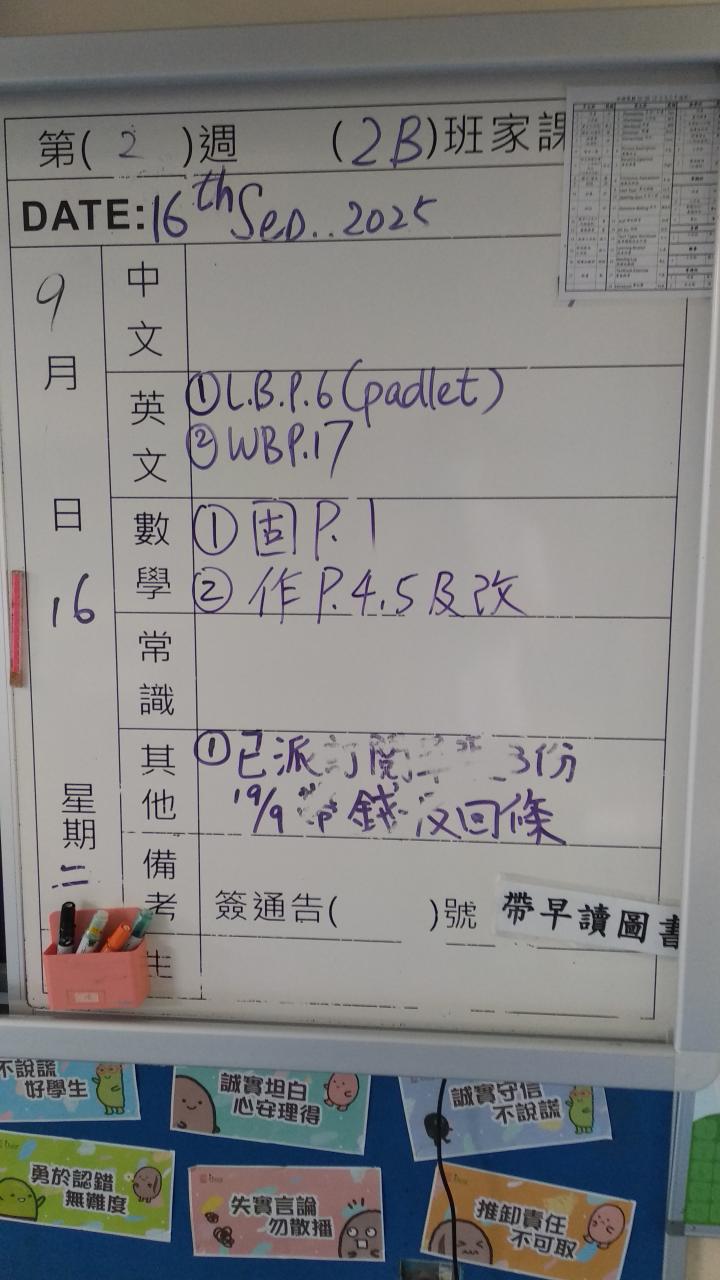 第( 2 )週 (2B)班家課
DATE: 16th Sep.. 2025
9月 日16 星期二
中文
英文
① L.B.P.6 (padlet)
② WBP.17
數學
① 固 P.1
② 作 P.4.5 及改
常識
其他
① 已派訂閱 3份
19/9 錢及回條
備考
簽通告( )號
帶早讀圖書
不說謊
好學生
誠實坦白
心安理得
誠實守信
不說謊
勇於認錯
無難度
失實言論
勿散播
推卸責任
不可取